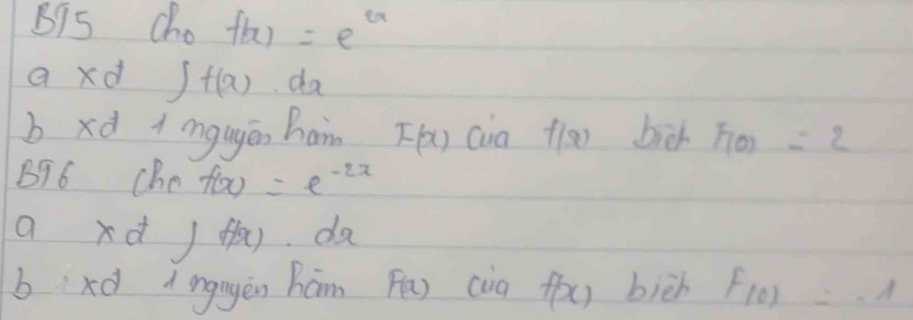 BT5 Cho f(x) = e^{2x}
a xđ ∫ f(x) . dx
b xđ 1 nguyên hàm F(x) của f(x) biết F(0) = 2
BT6 Cho f(x) = e^{-2x}
a xđ ∫ f(x) . dx
b xđ 1 nguyên hàm F(x) của f(x) biết F(0) = 1